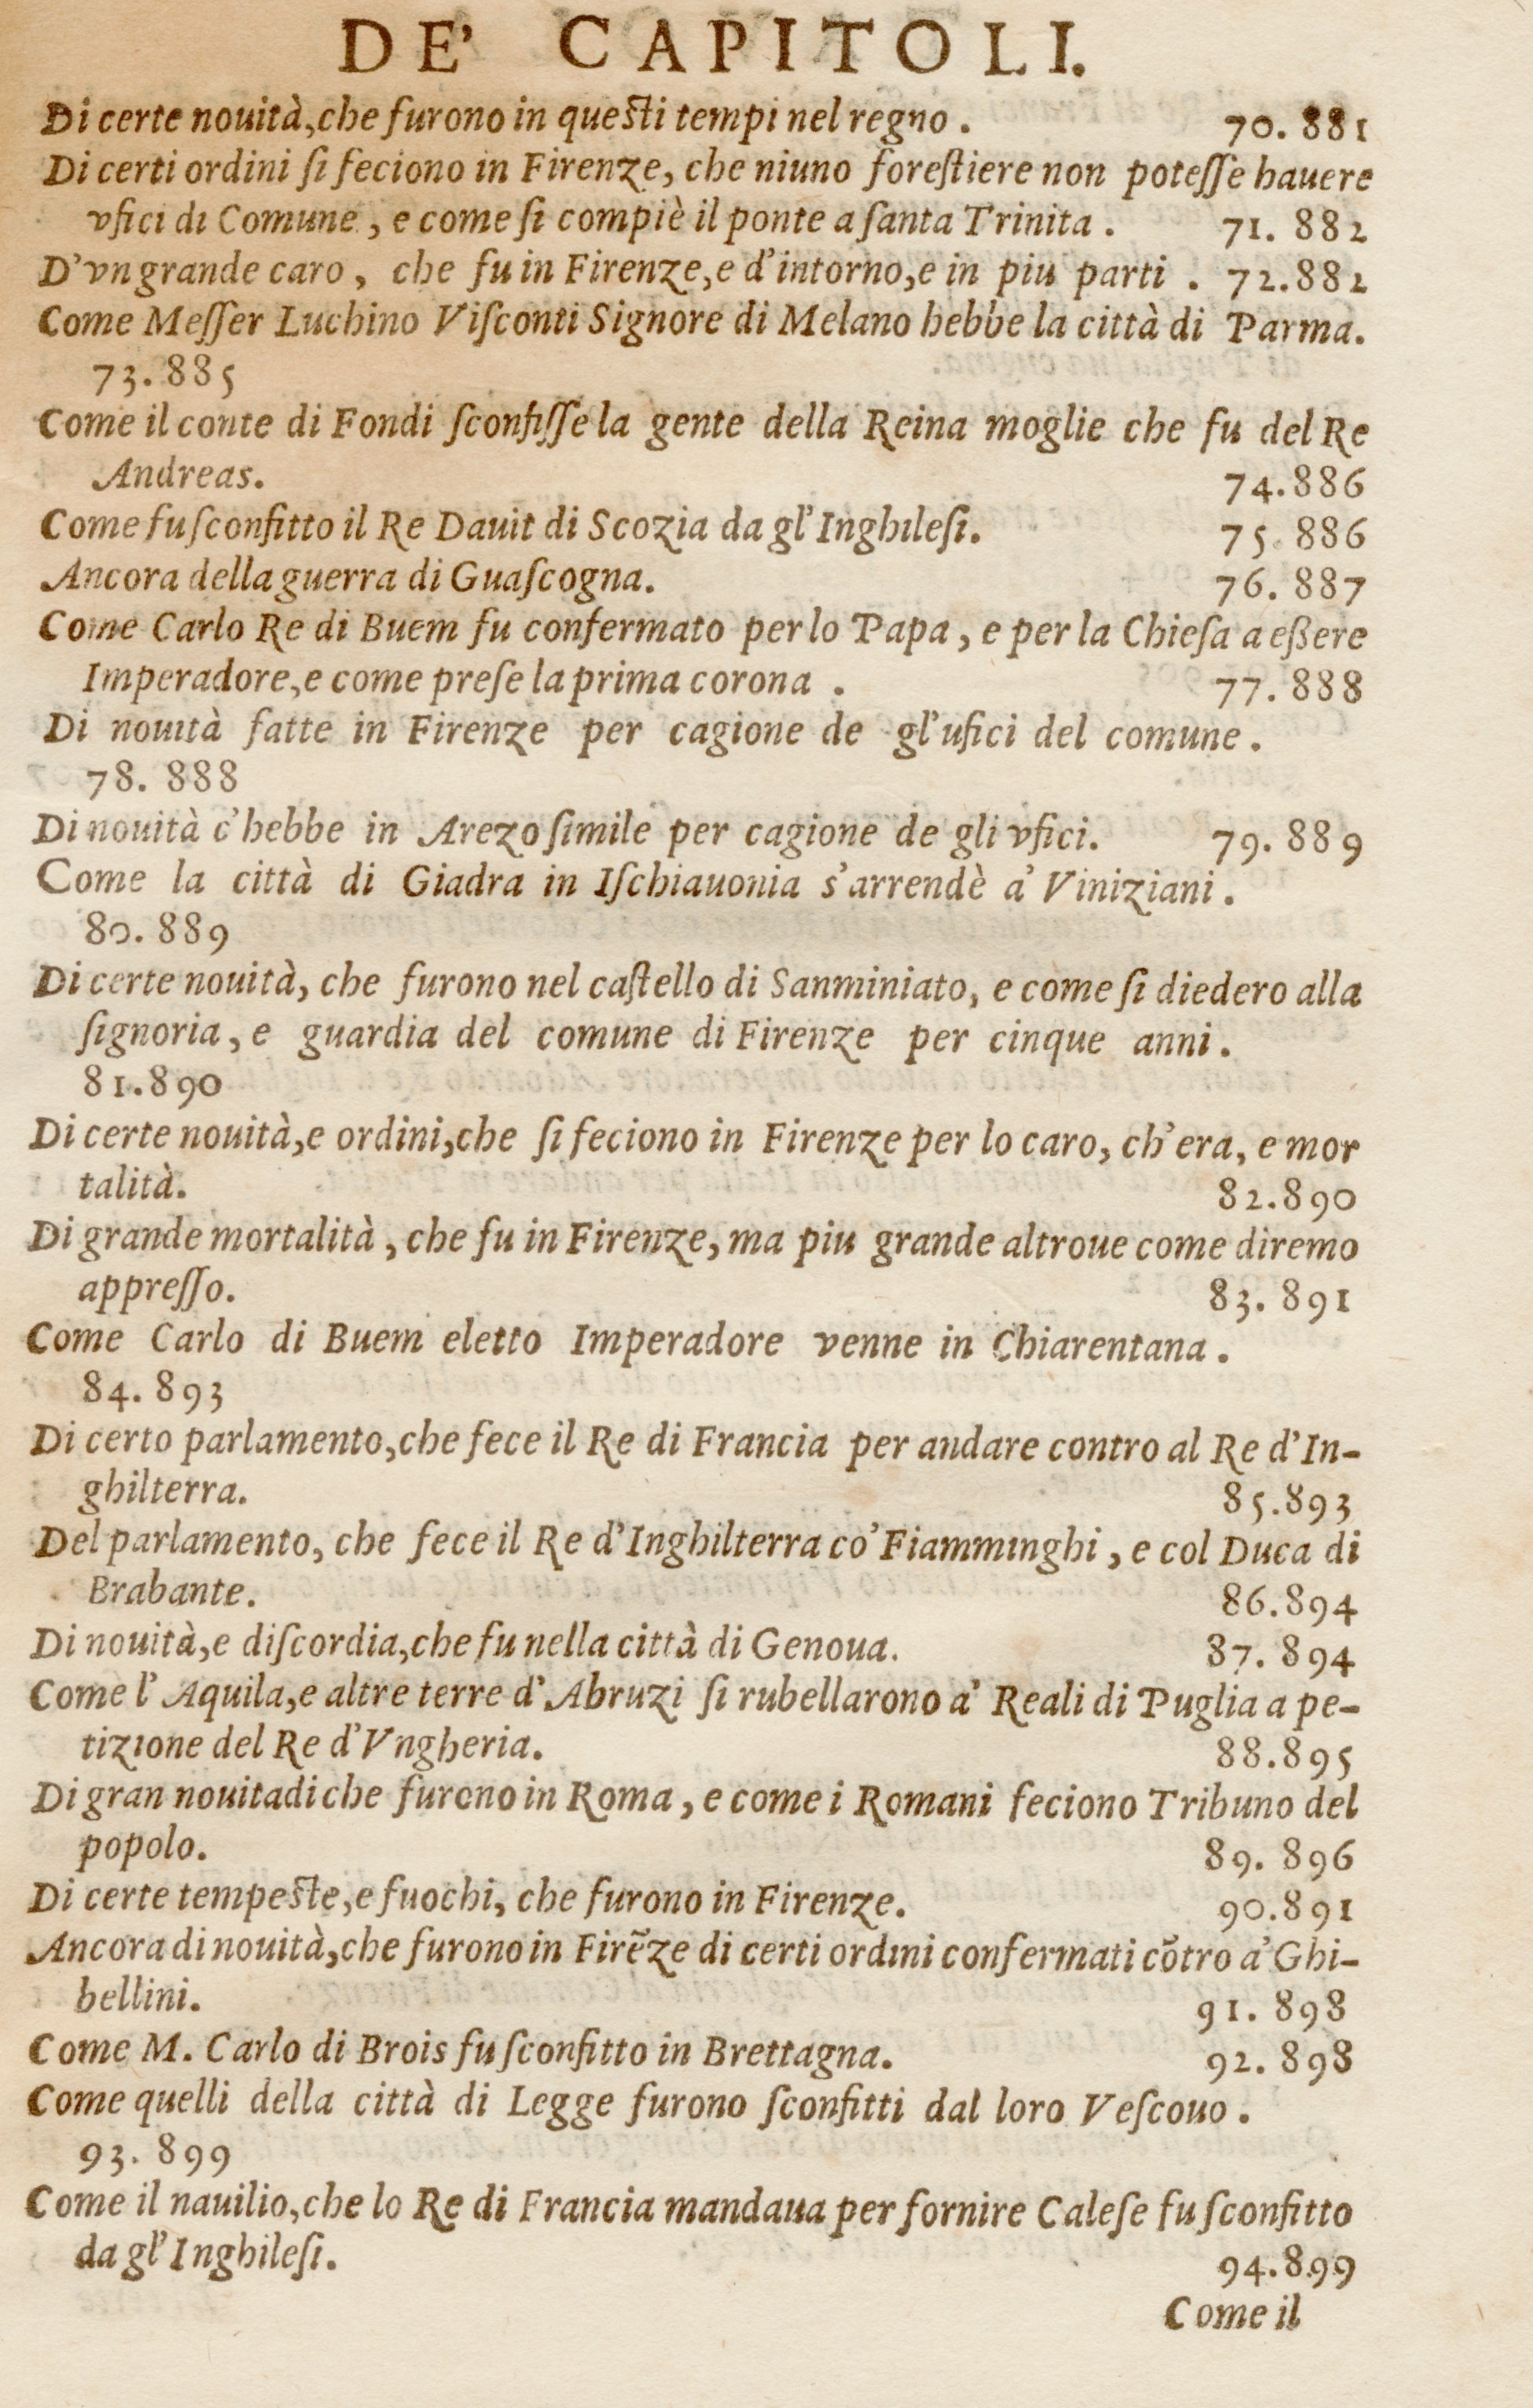 DE' CAPITOLI.
Di certe nouità, che furono in queſti tempi nel regno. 70. 881
Di certi ordini ſi feciono in Firenze, che niuno foreſtiere non poteſſe hauere
vfici di Comune, e come ſi compiè il ponte a ſanta Trinita. 71. 882
D'vn grande caro, che fu in Firenze, e d'intorno, e in piu parti. 72. 882
Come Meſſer Luchino Viſconti Signore di Melano hebbe la città di Parma.
73. 885
Come il conte di Fondi ſconfiſſe la gente della Reina moglie che fu del Re
Andreas. 74. 886
Come fu ſconfitto il Re Dauit di Scozia da gl'Inghileſi. 75. 886
Ancora della guerra di Guaſcogna. 76. 887
Come Carlo Re di Buem fu confermato per lo Papa, e per la Chieſa a eßere
Imperadore, e come preſe la prima corona. 77. 888
Di nouità fatte in Firenze per cagione de gl'ufici del comune.
78. 888
Di nouità c'hebbe in Arezo ſimile per cagione de gli vfici. 79. 889
Come la città di Giadra in Iſchiauonia s'arrendè a' Viniziani.
80. 889
Di certe nouità, che furono nel caſtello di Sanminiato, e come ſi diedero alla
ſignoria, e guardia del comune di Firenze per cinque anni.
81. 890
Di certe nouità, e ordini, che ſi feciono in Firenze per lo caro, ch'era, e mor
talità. 82. 890
Di grande mortalità, che fu in Firenze, ma piu grande altroue come diremo
appreſſo. 83. 891
Come Carlo di Buem eletto Imperadore venne in Chiarentana.
84. 893
Di certo parlamento, che fece il Re di Francia per andare contro al Re d'In-
ghilterra. 85. 893
Del parlamento, che fece il Re d'Inghilterra co' Fiamminghi, e col Duca di
Brabante. 86. 894
Di nouità, e diſcordia, che fu nella città di Genoua. 87. 894
Come l'Aquila, e altre terre d'Abruzi ſi rubellarono a' Reali di Puglia a pe-
tizione del Re d'Vngheria. 88. 895
Di gran nouitadi che furono in Roma, e come i Romani feciono Tribuno del
popolo. 89. 896
Di certe tempeſte, e fuochi, che furono in Firenze. 90. 891
Ancora di nouità, che furono in Firẽze di certi ordini confermati cõtro a' Ghi-
bellini. 91. 898
Come M. Carlo di Brois fu ſconfitto in Brettagna. 92. 898
Come quelli della città di Legge furono ſconfitti dal loro Veſcouo.
93. 899
Come il nauilio, che lo Re di Francia mandaua per fornire Caleſe fu ſconfitto
da gl'Inghileſi. 94. 899
Come il